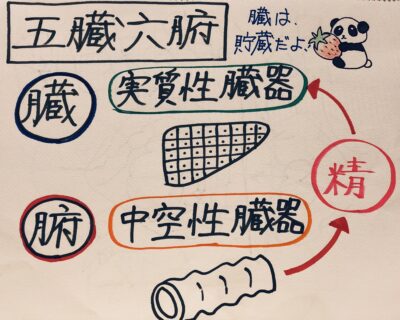 五臓六腑
臓は、
貯蔵だよ。
臓
実質性臓器
精
腑
中空性臓器